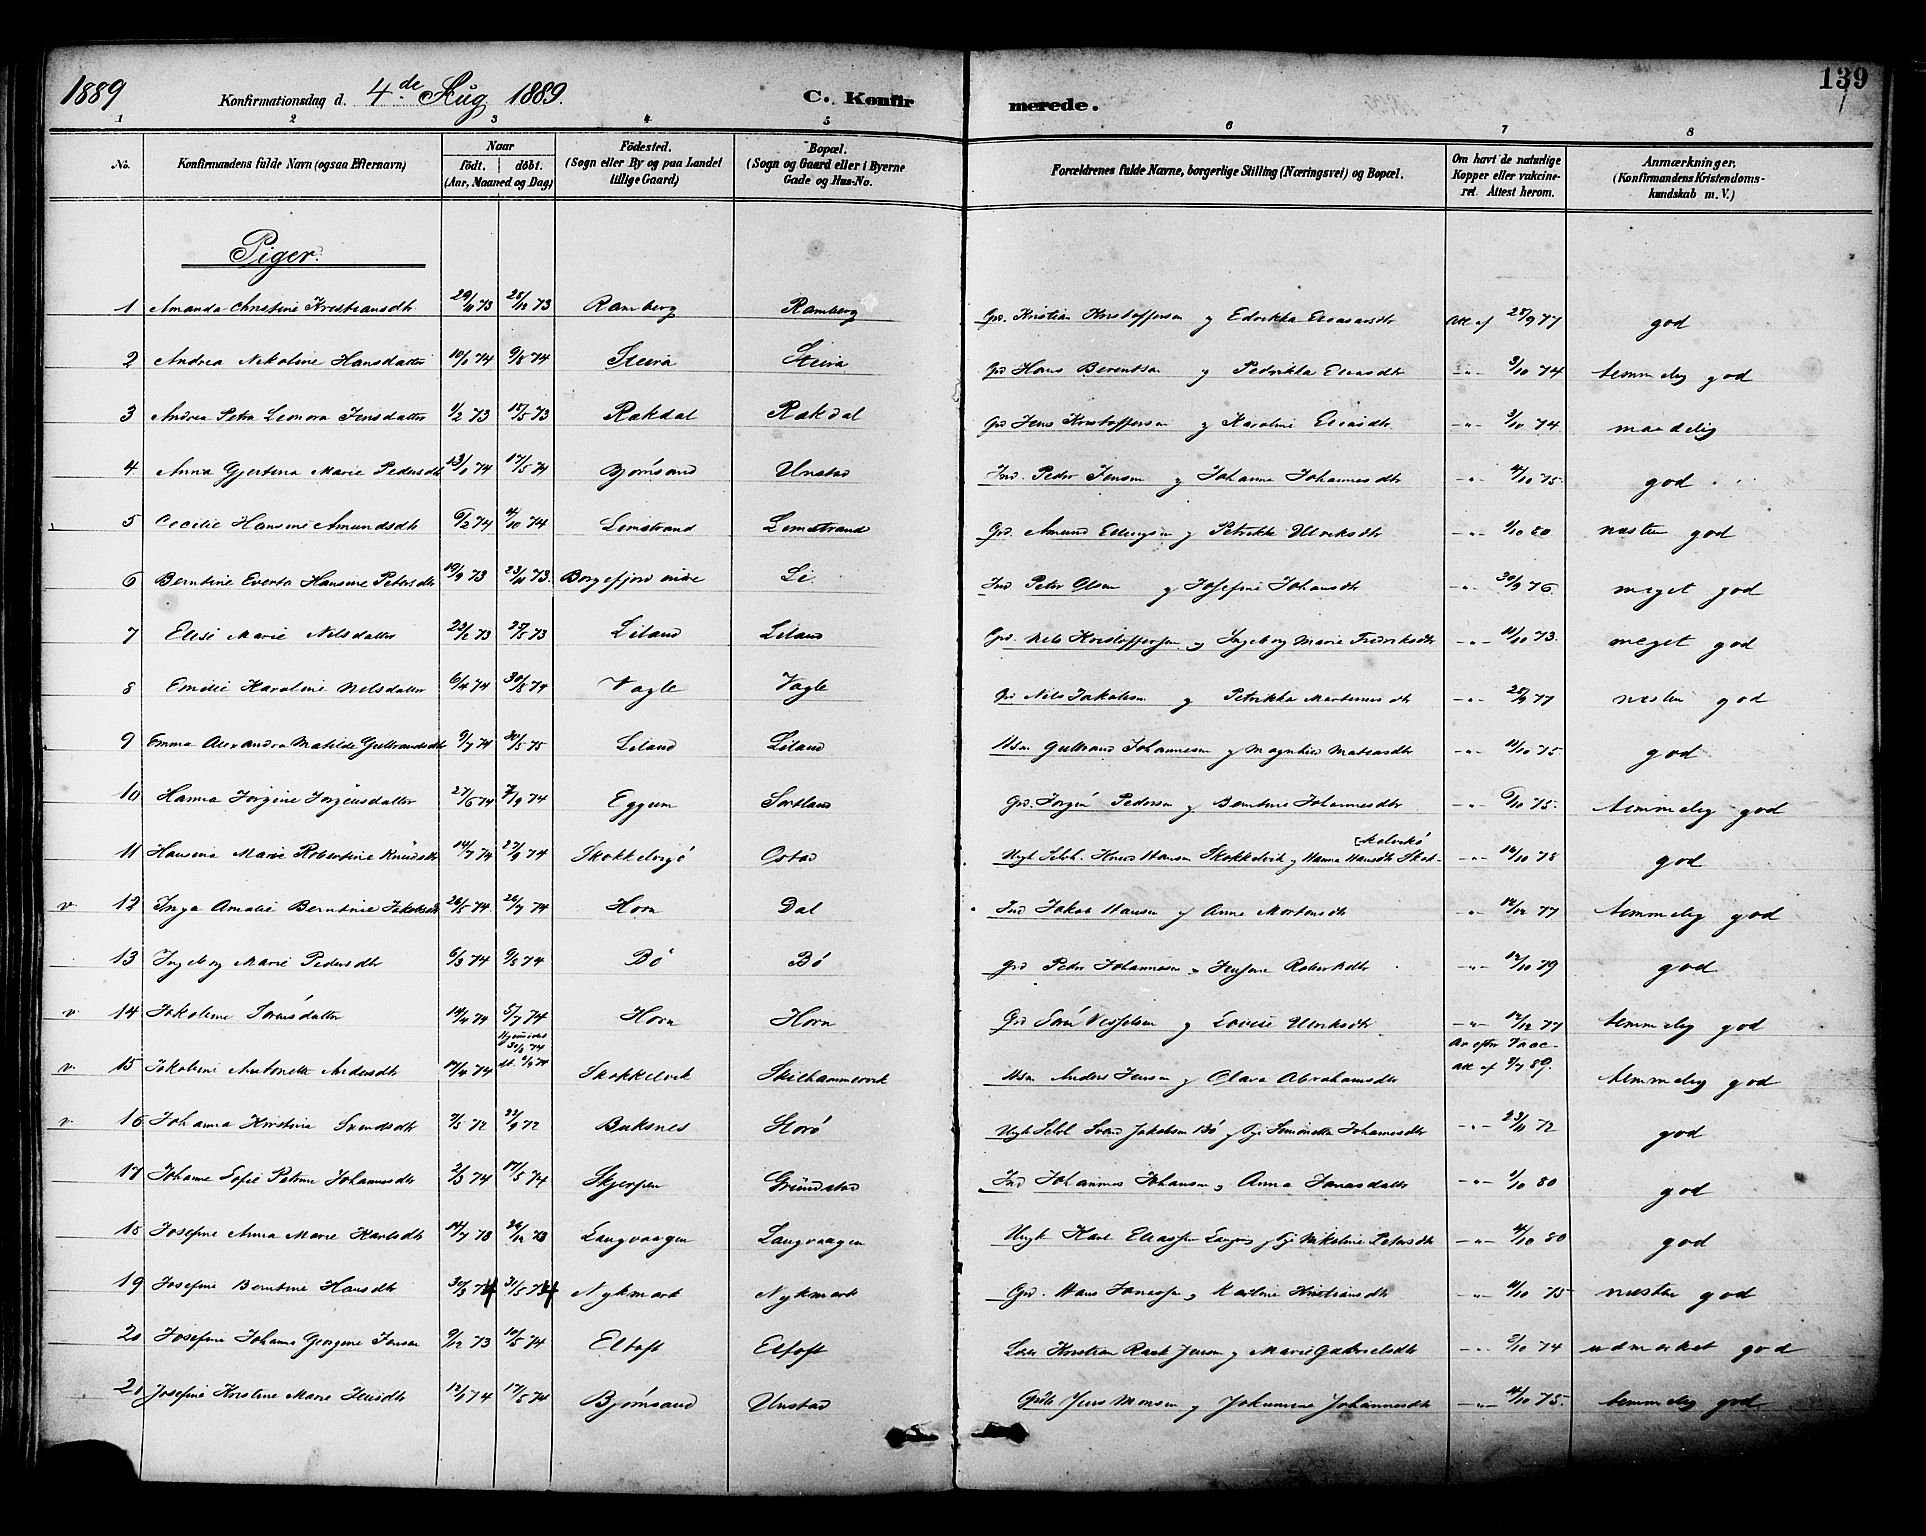 1889 Konfirmationsdag d. 4de Aug 1889. C. Konfir merede. 139
1 2 3 4 5 6 7 8
No. Konfirmandens fulde Navn (ogsaa Efternavn) Naar født. døbt. (Aar, Maaned og Dag) Födested. (Sogn eller By og paa Landet tillige Gaard) Bopæl. (Sogn og Gaard eller i Byerne Gade og Hus-No. Forældrenes fulde Navne, borgerlige Stilling (Næringsvei) og Bopæl. Om havt de naturlige Kopper eller vakcineret. Attest herom. Anmærkninger. (Konfirmandens Kristendomskundskab m. V.)
Piger.
1 Amanda Christine Kristiansdtr 29/11 73 28/12 73 Ramberg Ramberg Grd. Kristian Kristoffersen og Edrikka Eliasdtr Att af 28/9 77 god
2 Andrea Nikoline Hansdatter 10/1 74 9/8 74 Steira Steira Grd Hans Berentsen og Petrikka Eliasdtr -"- 3/10 74 temmelig god
3 Andrea Petra Leonora Jensdatter 1/2 73 17/5 73 Rækdal Rækdal Grd Jens Kristoffersen og Karoline Eliasdtr -"- 3/10 74 maadelig
4 Anna Gjertina Marie Pedersdtr 13/1 74 17/5 74 Bjørnsand Unstad Ind. Peder Jensen og Johanna Johannesdtr -"- 4/10 75 god
5 Cecilie Hansine Amundsdtr 6/2 74 4/10 74 Lemstrand Lemstrand Grd. Amund Ellingsen og Petrikke Ulriksdtr -"- 1/10 80 næsten god
6 Berntine Everta Hansine Petersdtr 19/9 73 23/11 73. Borgefjord indre Li Ind Peter Olsen og Josefine Johansdtr -"- 30/9 76. meget god
7 Elise Marie Nilsdatter 22/2 73 25/5 73 Liland Liland Grd. Nils Kristoffersen og Ingeborg Marie Fredriksdtr -"- 10/10 73. meget god
8 Emilie Karoline Nilsdatter 6/4 74 30/8 74 Vagle Vagle Grd Nils Jakobsen og Petrikka Martinusdtr -"- 28/9 77 næsten god
9 Emma Alexandra Matilde Gulbrandsdtr 9/7 74 30/5 75 Liland Liland Hsm Gulbrand Johannesen og Magnhild Matiasdtr -"- 11/10 75 god
10 Hanna Jørgine Jørgensdatter 27/6 74 7/9 74 Eggum Sortland Grd. Jørgen Pedersen og Berntine Johannesdtr -"- 6/10 75. temmelig god
11 Hansina Marie Robertine Knudsdtr 14/7 74 27/9 74 Skokkelvigø Ostad Ungk Selvl. Knud Hansen Skokkelvik og Hanna Hansdtr Skokkelvikø -"- 12/10 78 god
v. 12 Inga Amalie Berntine Jakobsdtr 26/5 74 26/7 74 Horn Dal Ind Jakob Hansen og Anne Mortensdtr -"- 12/12 77 temmelig god
13 Ingeborg Marie Pedersdtr 6/3 74 9/8 74 Bø Bø Grd Peder Johannesen og Jensine Robertsdtr -"- 12/10 79 god
v. 14 Jakobine Sørensdatter 14/4 74 5/7 74 Horn Horn Grd Sørn Vesselsen og Lovise Ulriksdtr -"- 12/12 77 temmelig god
v. 15 Jakobine Antonette Andersdtr 17/4 74 Hjemmed 30/8 74 Skokkelvik Skithammervik Hsm Anders Jensen og Olava Abrahamsdtr Ar efter Vacc- att af 9/7 89. temmelig god
v. 16 Johanna Kristina Svendsdtr 7/5 72 22/9 72 Buksnes Storø Ungk Selvl Svend Jakobsen Bø og Pige Simonette Johannesdtr -"- 23/11 72 god
17 Johanna Sofie Petrine Johannesdtr 2/3 74 17/5 74 Skjerpen Grundstad Ind Johannes Johansen og Anna Jonasdatter -"- 1/10 80 god
18 Josefine Anna Marie Karlsdtr 14/7 73 26/12 73 Langvaagen Langvaagen Ungk Karl Eliassen og Pige Nikoline Petersdtr -"- 4/10 80 god
19 Josefine Berntine Hansdtr 30/3 74 31/5 74 Nykmark Nykmark Grd. Hans Jonassen og Karoline Kristiansdtr -"- 11/10 75 næsten god
20 Josefine Johanna Georgine Jensen 9/12 73 10/5 74 Eltoft Eltoft Kristian Rask Jensen og Marie Gabrielsdtr -"- 2/10 74 udmerket god
21 Josefine Kristine Marie Jensdtr 12/1 74 17/5 74 Bjørnsand Unstad Jens Monsen og Jakumine Johannesdtr -"- 4/10 75. temmelig god